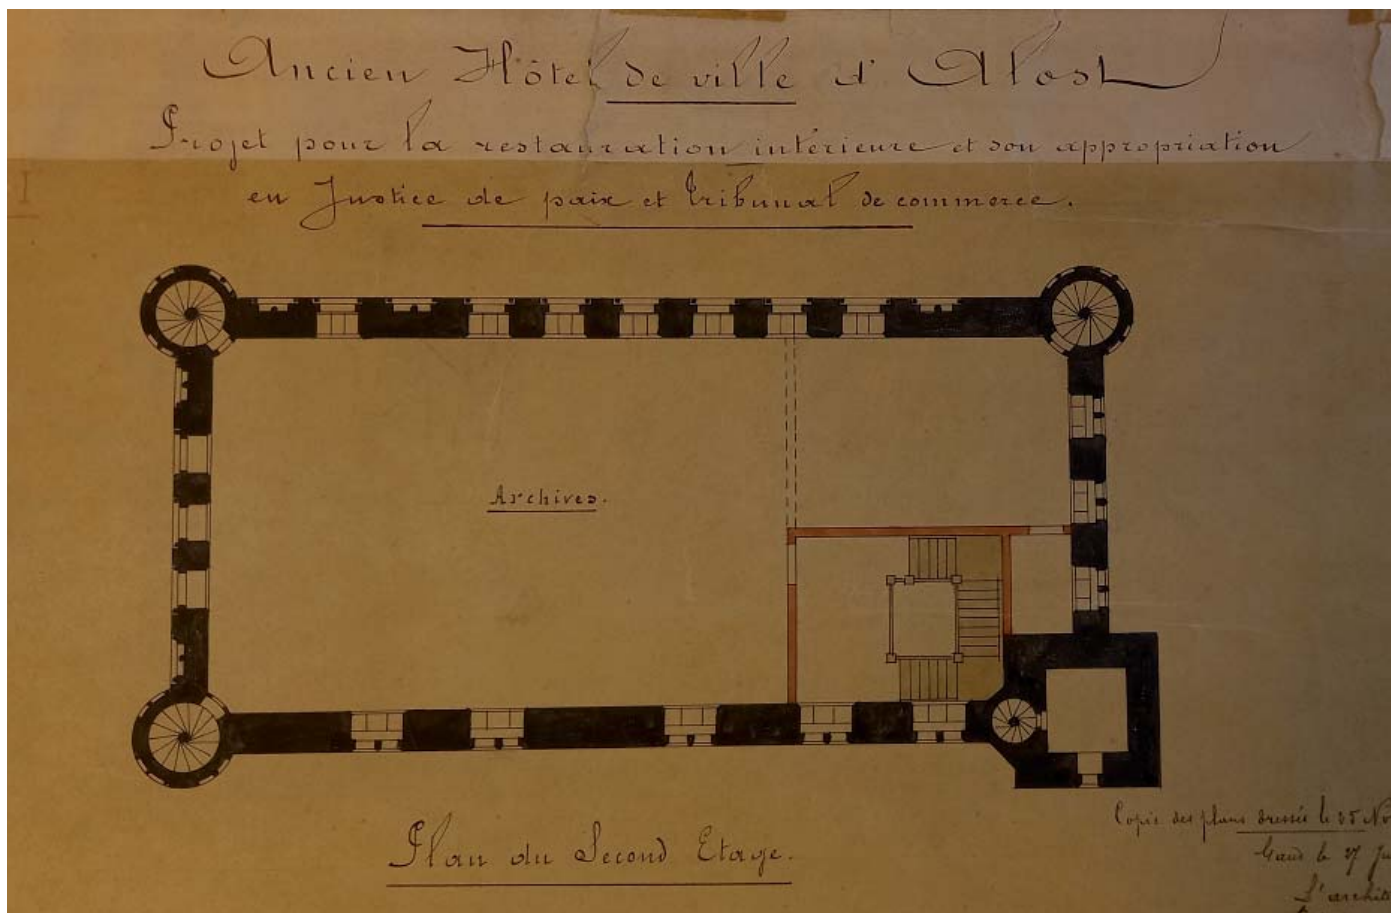 Ancien Hôtel de ville d'Alost
Projet pour la restauration intérieure et son appropriation
en Justice de paix et Tribunal de commerce.
I
Archives.
Plan du Second Etage.
Copie des plans dressés le 25 No
Gand le 27
L'archite